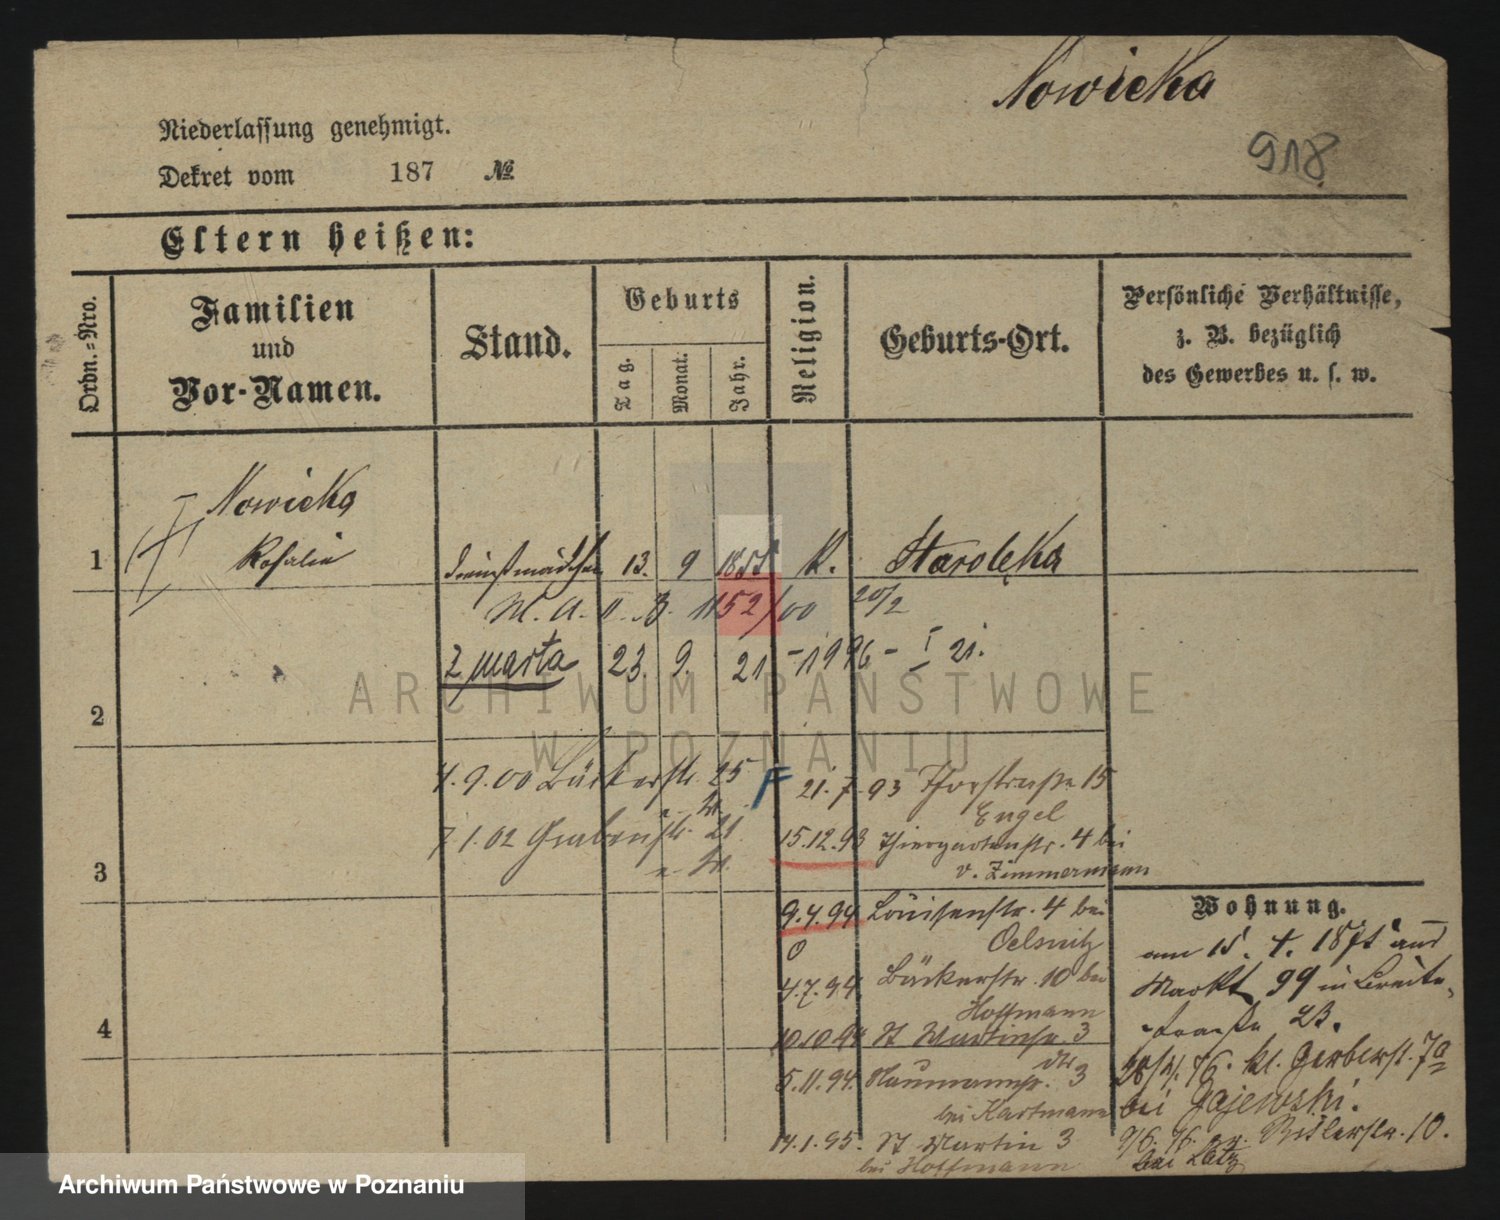 Nowicka
918
Niederlassung genehmigt.
Dekret vom 187 №
Eltern heißen:
Ordn.-Nro.
Familien
und
Vor-Namen.
Stand.
Geburts
Tag.
Monat.
Jahr.
Religion.
Geburts-Ort.
Persönliche Verhältnisse,
z. B. bezüglich
des Gewerbes u. s. w.
Nowicka
1 Rosalie Dienstmädchen 13. 9 1855 K. Starolęka
M. A. II. 1152/00 20/2
2
Z marła 23. 9. 21 - 1996 - I 21.
ARCHIWUM PAŃSTWOWE
W POZNANIU
4.9.00 Bäckerstr. 25
F 21.7.93 Thorstraße 15
Engel
7.1.02 Grabenstr. 21
15.12.93 Thiergartenstr. 4 bei
v. Zimmermann
3
Wohnung.
9.4.94 Louisenstr. 4 bei
Oelsnitz
4.7.94. Bäckerstr. 10 bei
Hoffmann
10.10.94 St Martinstr. 3
4
5.11.94. Naumannstr. 3
bei Hartmann
14.1.95. St Martin 3
bei Hoffmann
am 15. 4. 1875 aus
Markt 99 in Breite-
straße 23.
28/4. 76. kl. Gerberst. 7a
bei Gajewski.
9/6. 76. gr. Ritterstr. 10.
bei
Archiwum Państwowe w Poznaniu